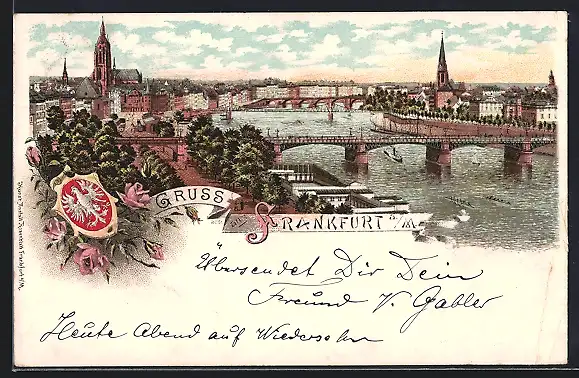 GRUSS
AUS
FRANKFURT a/M.
Übersendet Dir Dein
Freund V. Gabler
Heute Abend auf Wiedersehn